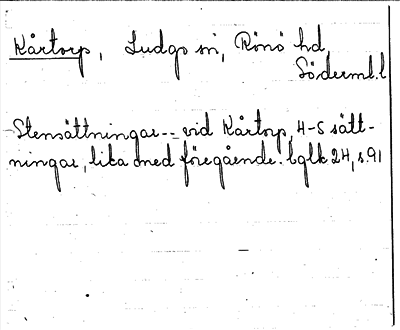 Kårtorp, Ludgo sn, Rönö hd,
Söderml.l
Stensättningar -- vid Kårtorp, 4-5 sätt-
ningar, lika med föregående. Eglk 24, s.91